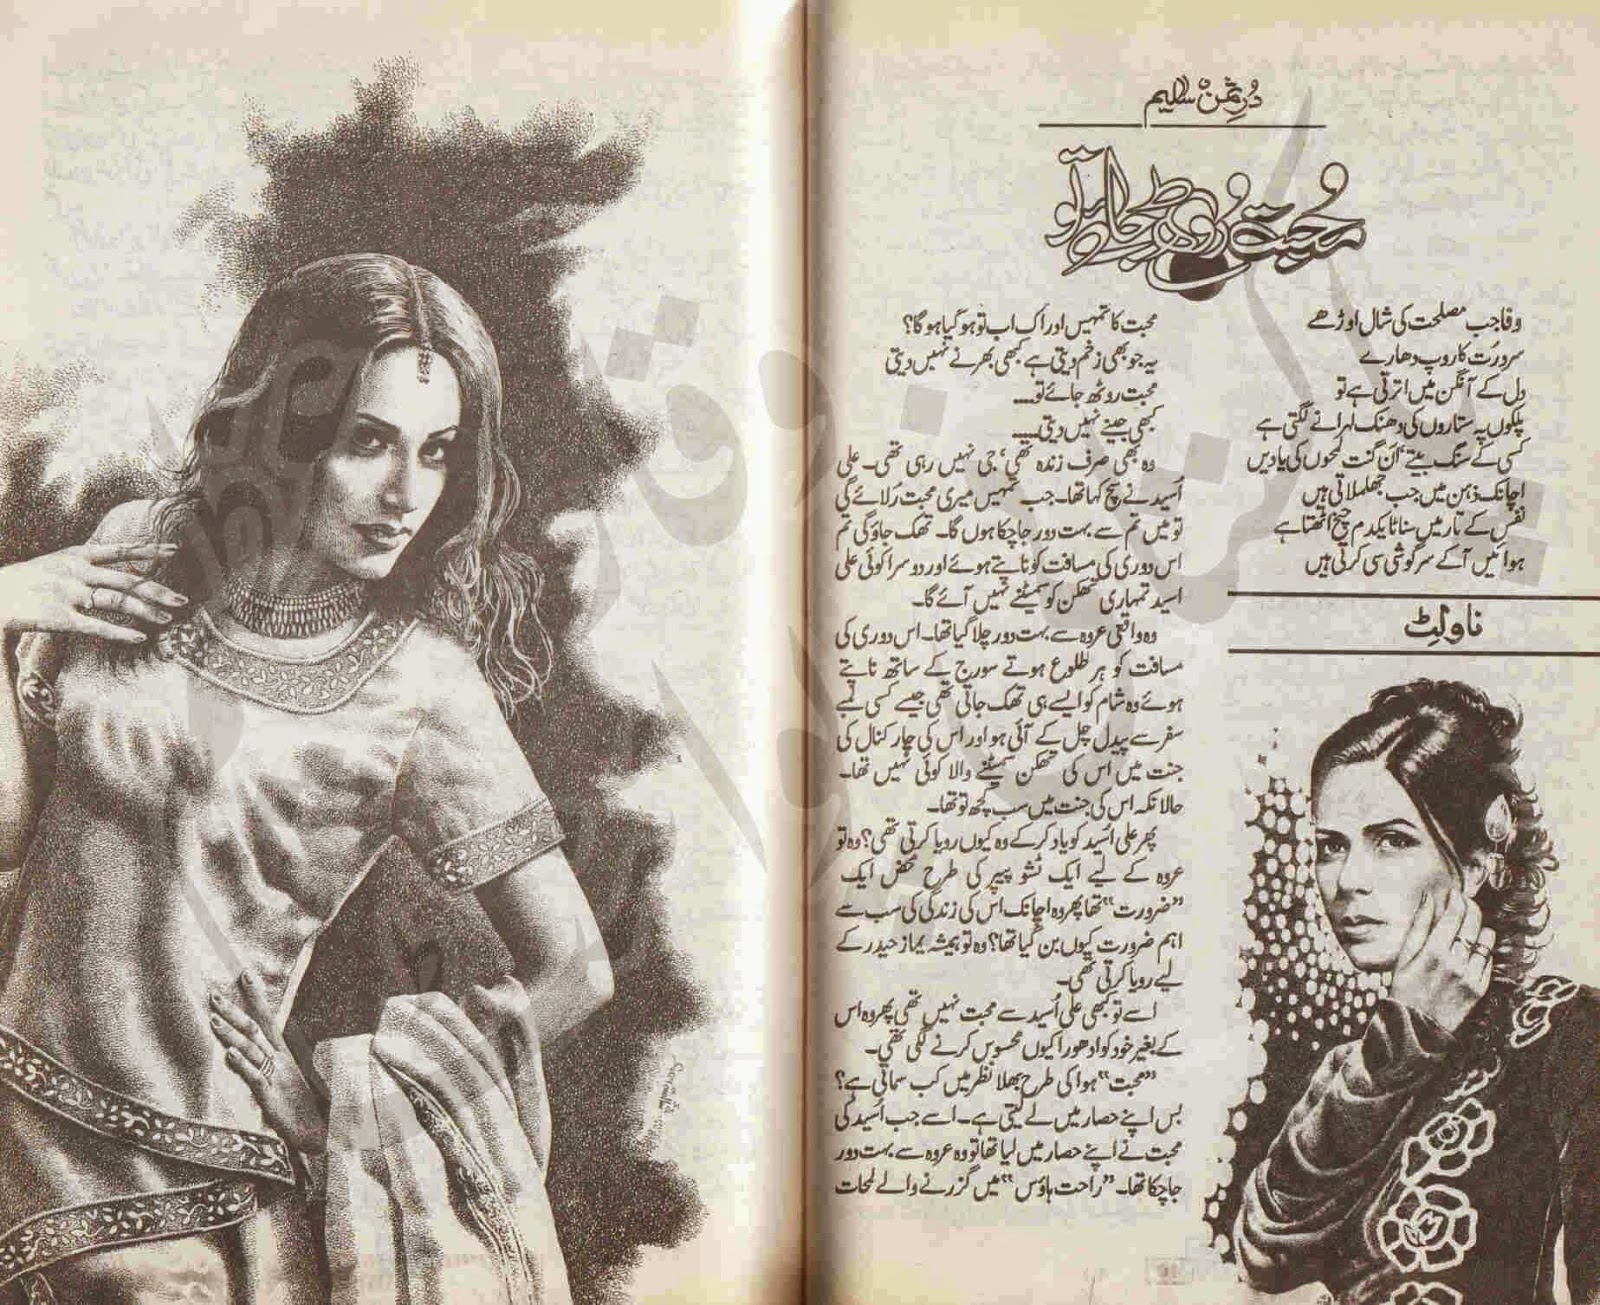 دُرِثمن سلیم
محبت روٹھ جائے تو
وفا جب مصلحت کی شال اوڑھے
سرد رُت کا روپ دھارے
دِل کے آنگن میں اترتی ہے تو
پلکوں پہ ستاروں کی دھنک لہرانے لگتی ہے
کسی کے سنگ بیتے اَن گنت لمحوں کی یادیں
اچانک ذہن میں جب جھلملاتی ہیں
نفس کے تار میں سناٹا یکدم چیخ اٹھتا ہے
ہوائیں آ کے سرگوشی سی کرتی ہیں
ناولٹ
محبت کا تمہیں ادراک اب تو ہو گیا ہو گا؟
یہ جو بھی زخم دیتی ہے کبھی بھرنے نہیں دیتی
محبت روٹھ جائے تو.....
کبھی جینے نہیں دیتی.....
وہ بھی صرف زندہ تھی‘ جی نہیں رہی تھی۔ علی
اُسید نے سچ کہا تھا۔ جب تمہیں میری محبت رُلائے گی
تو میں تم سے بہت دور جا چکا ہوں گا۔ تھک جاؤ گی تم
اس دوری کی مسافت کو ناپتے ہوئے اور دوسرا کوئی علی
اسید تمہاری تھکن کو سمیٹنے نہیں آئے گا۔
وہ واقعی عروہ سے بہت دور چلا گیا تھا۔ اس دوری کی
مسافت کو ہر طلوع ہوتے سورج کے ساتھ ناپتے
ہوئے وہ شام کو ایسے ہی تھک جاتی تھی جیسے کسی لمبے
سفر سے پیدل چل کے آئی ہو اور اس کی چار کنال کی
جنت میں اس کی تھکن سمیٹنے والا کوئی نہیں تھا۔
حالانکہ اس کی جنت میں سب کچھ تو تھا۔
پھر علی اُسید کو یاد کر کے وہ کیوں رویا کرتی تھی؟ وہ تو
عروہ کے لیے ایک ٹشو پیپر کی طرح محض ایک
”ضرورت“ تھا پھر وہ اچانک اس کی زندگی کی سب سے
اہم ضرورت کیوں بن گیا تھا؟ وہ تو ہمیشہ یماز حیدر کے
لیے رویا کرتی تھی۔
اسے تو کبھی علی اُسید سے محبت نہیں تھی پھر وہ اس
کے بغیر خود کو ادھورا کیوں محسوس کرنے لگی تھی۔
”محبت“ ہوا کی طرح بھلا نظر میں کب سماتی ہے؟
بس اپنے حصار میں لے لیتی ہے۔ اسے جب اُسید کی
محبت نے اپنے حصار میں لیا تھا تو وہ عروہ سے بہت دور
جا چکا تھا۔ ”راحت ہاؤس“ میں گزرنے والے لمحات